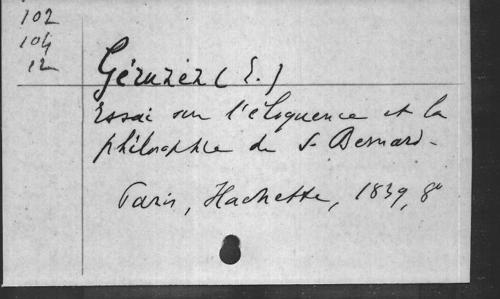 102
104
12
Géruzez (E.)
Essai sur l'éloquence et la
philosophie de St Bernard.
Paris, Hachette, 1839, 8°